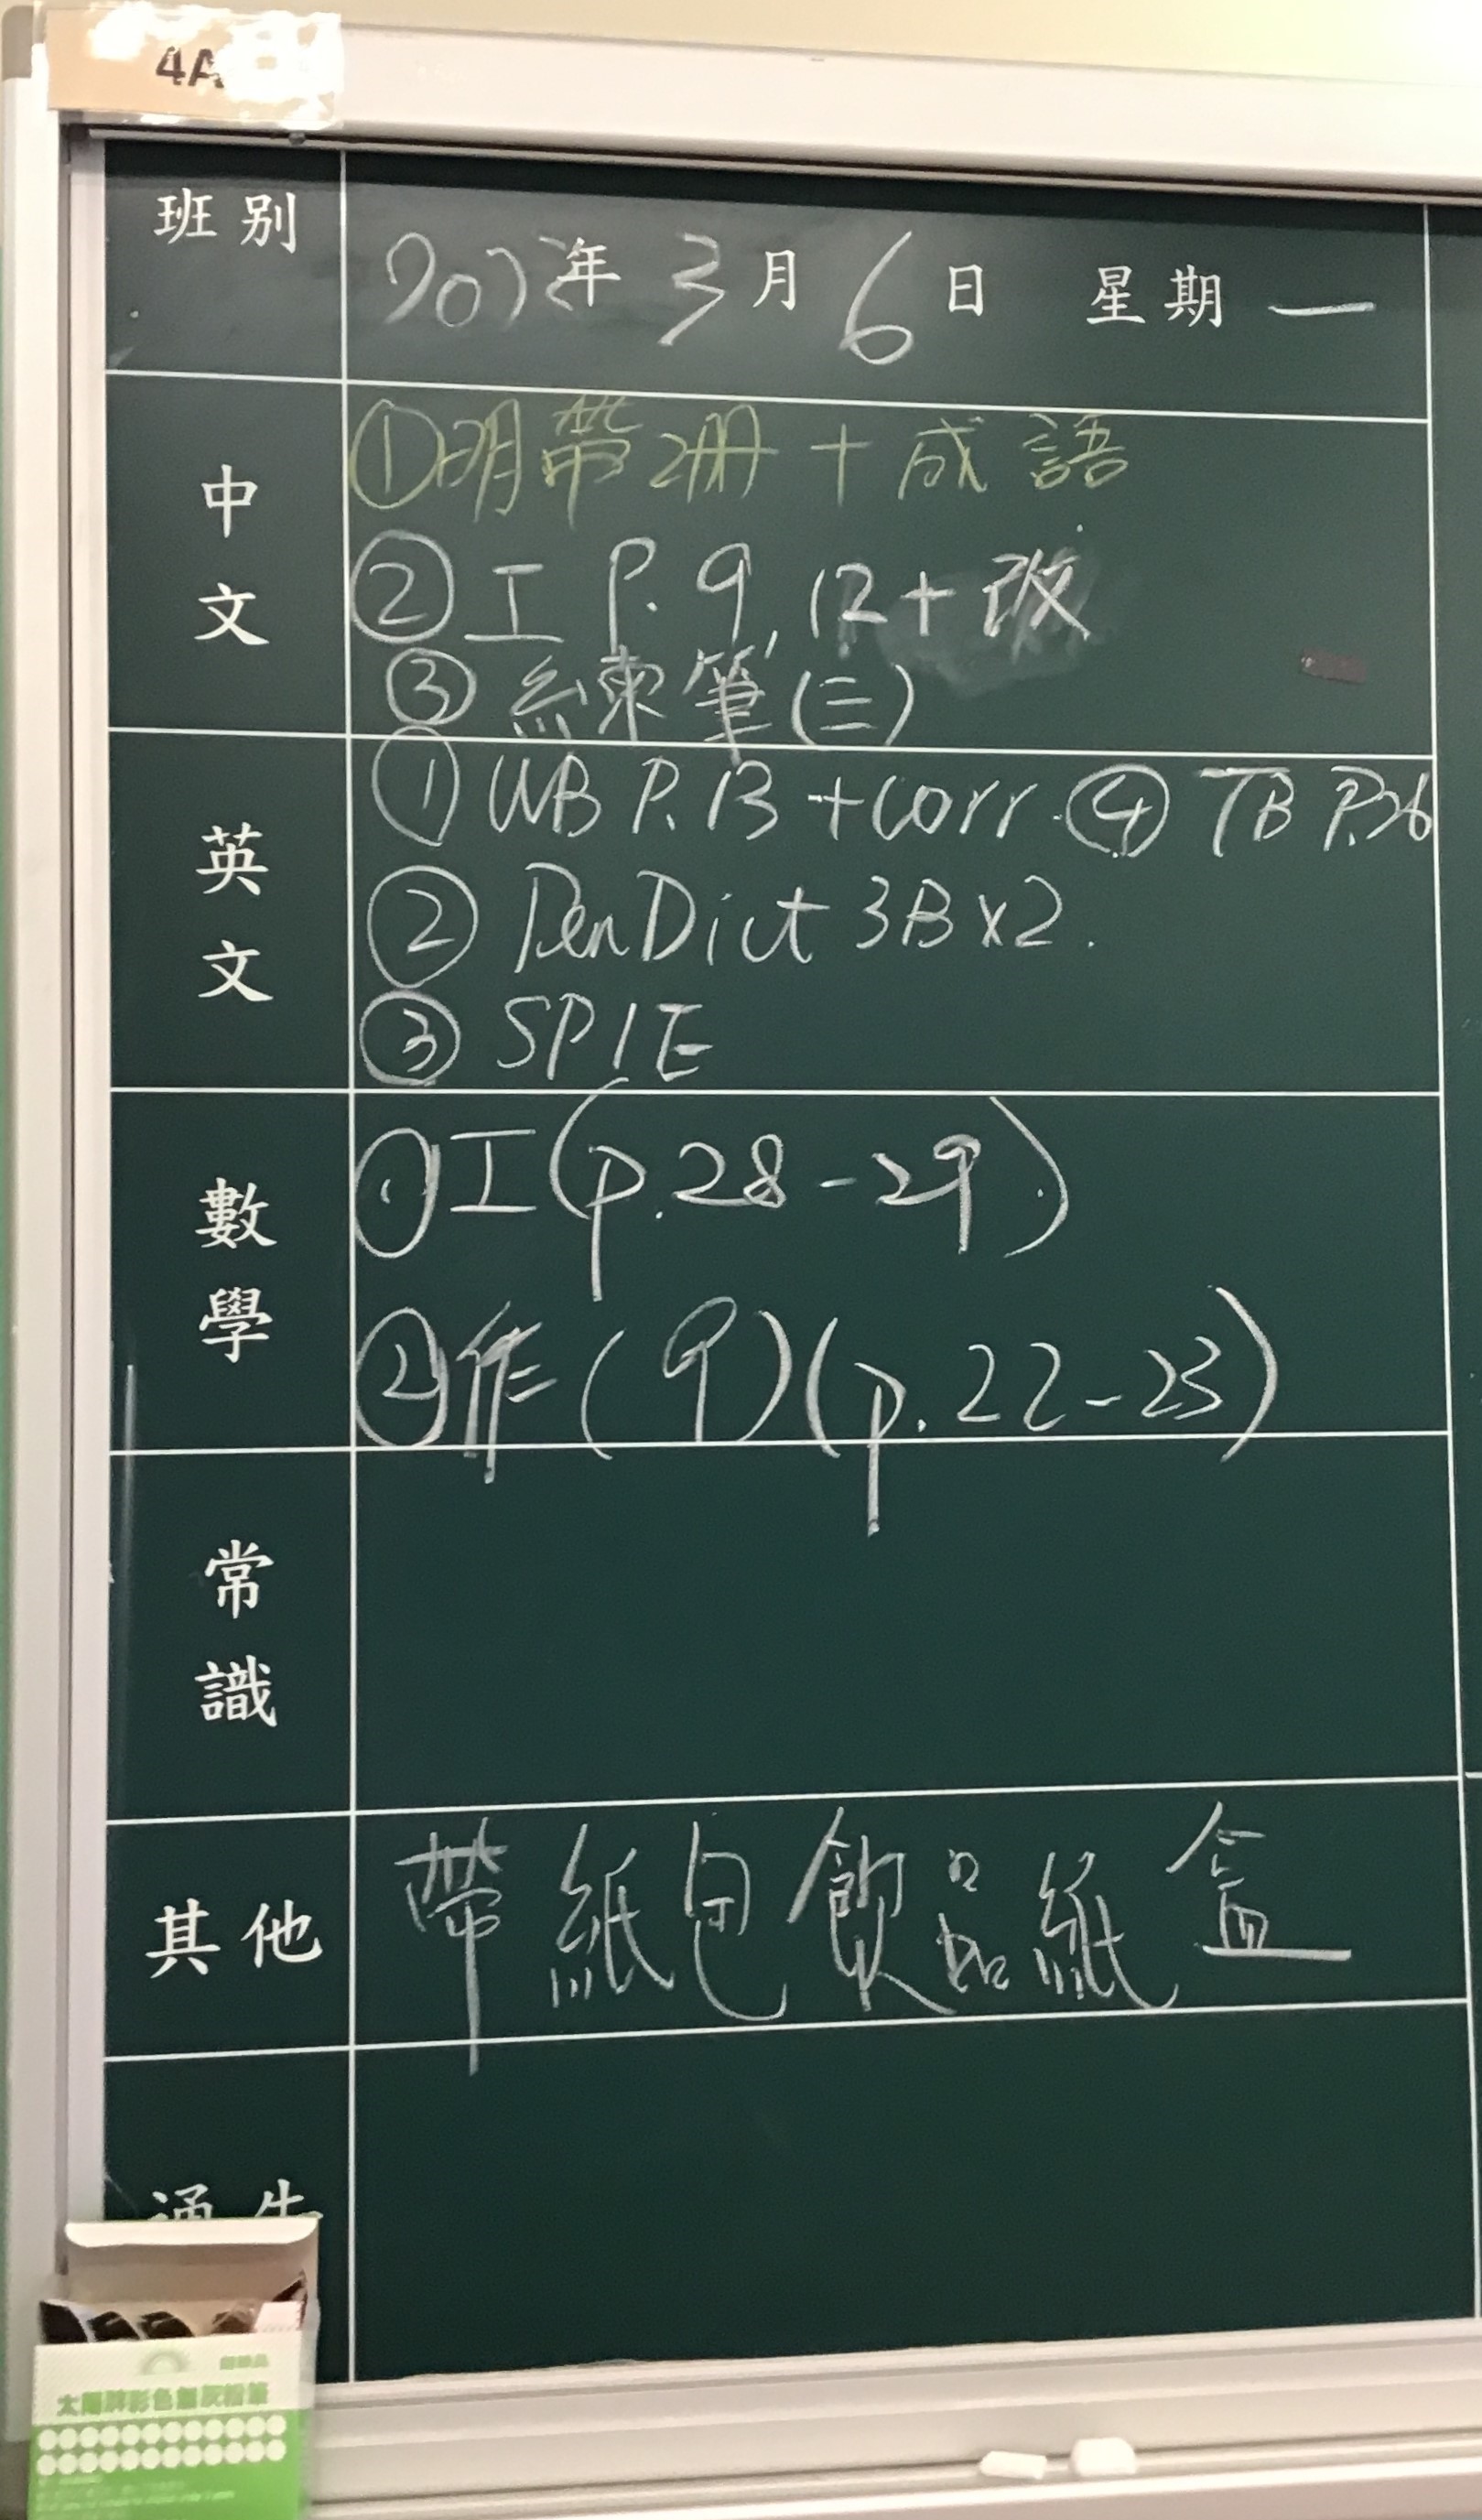 4A
班別
202 年 3 月 6 日 星期 一
中文
①明帶2冊+成語
② 工 P. 9, 12 + 改
③ 練筆(三)
英文
① WB P. 13 + corr. ④ TB P.26
② Pen Dict 3B x2.
③ SPIE
數學
①工(p.28-29)
②作(9)(p.22-23)
常識
其他
帶紙包飲品紙盒
通告
太陽牌彩色無灰粉筆